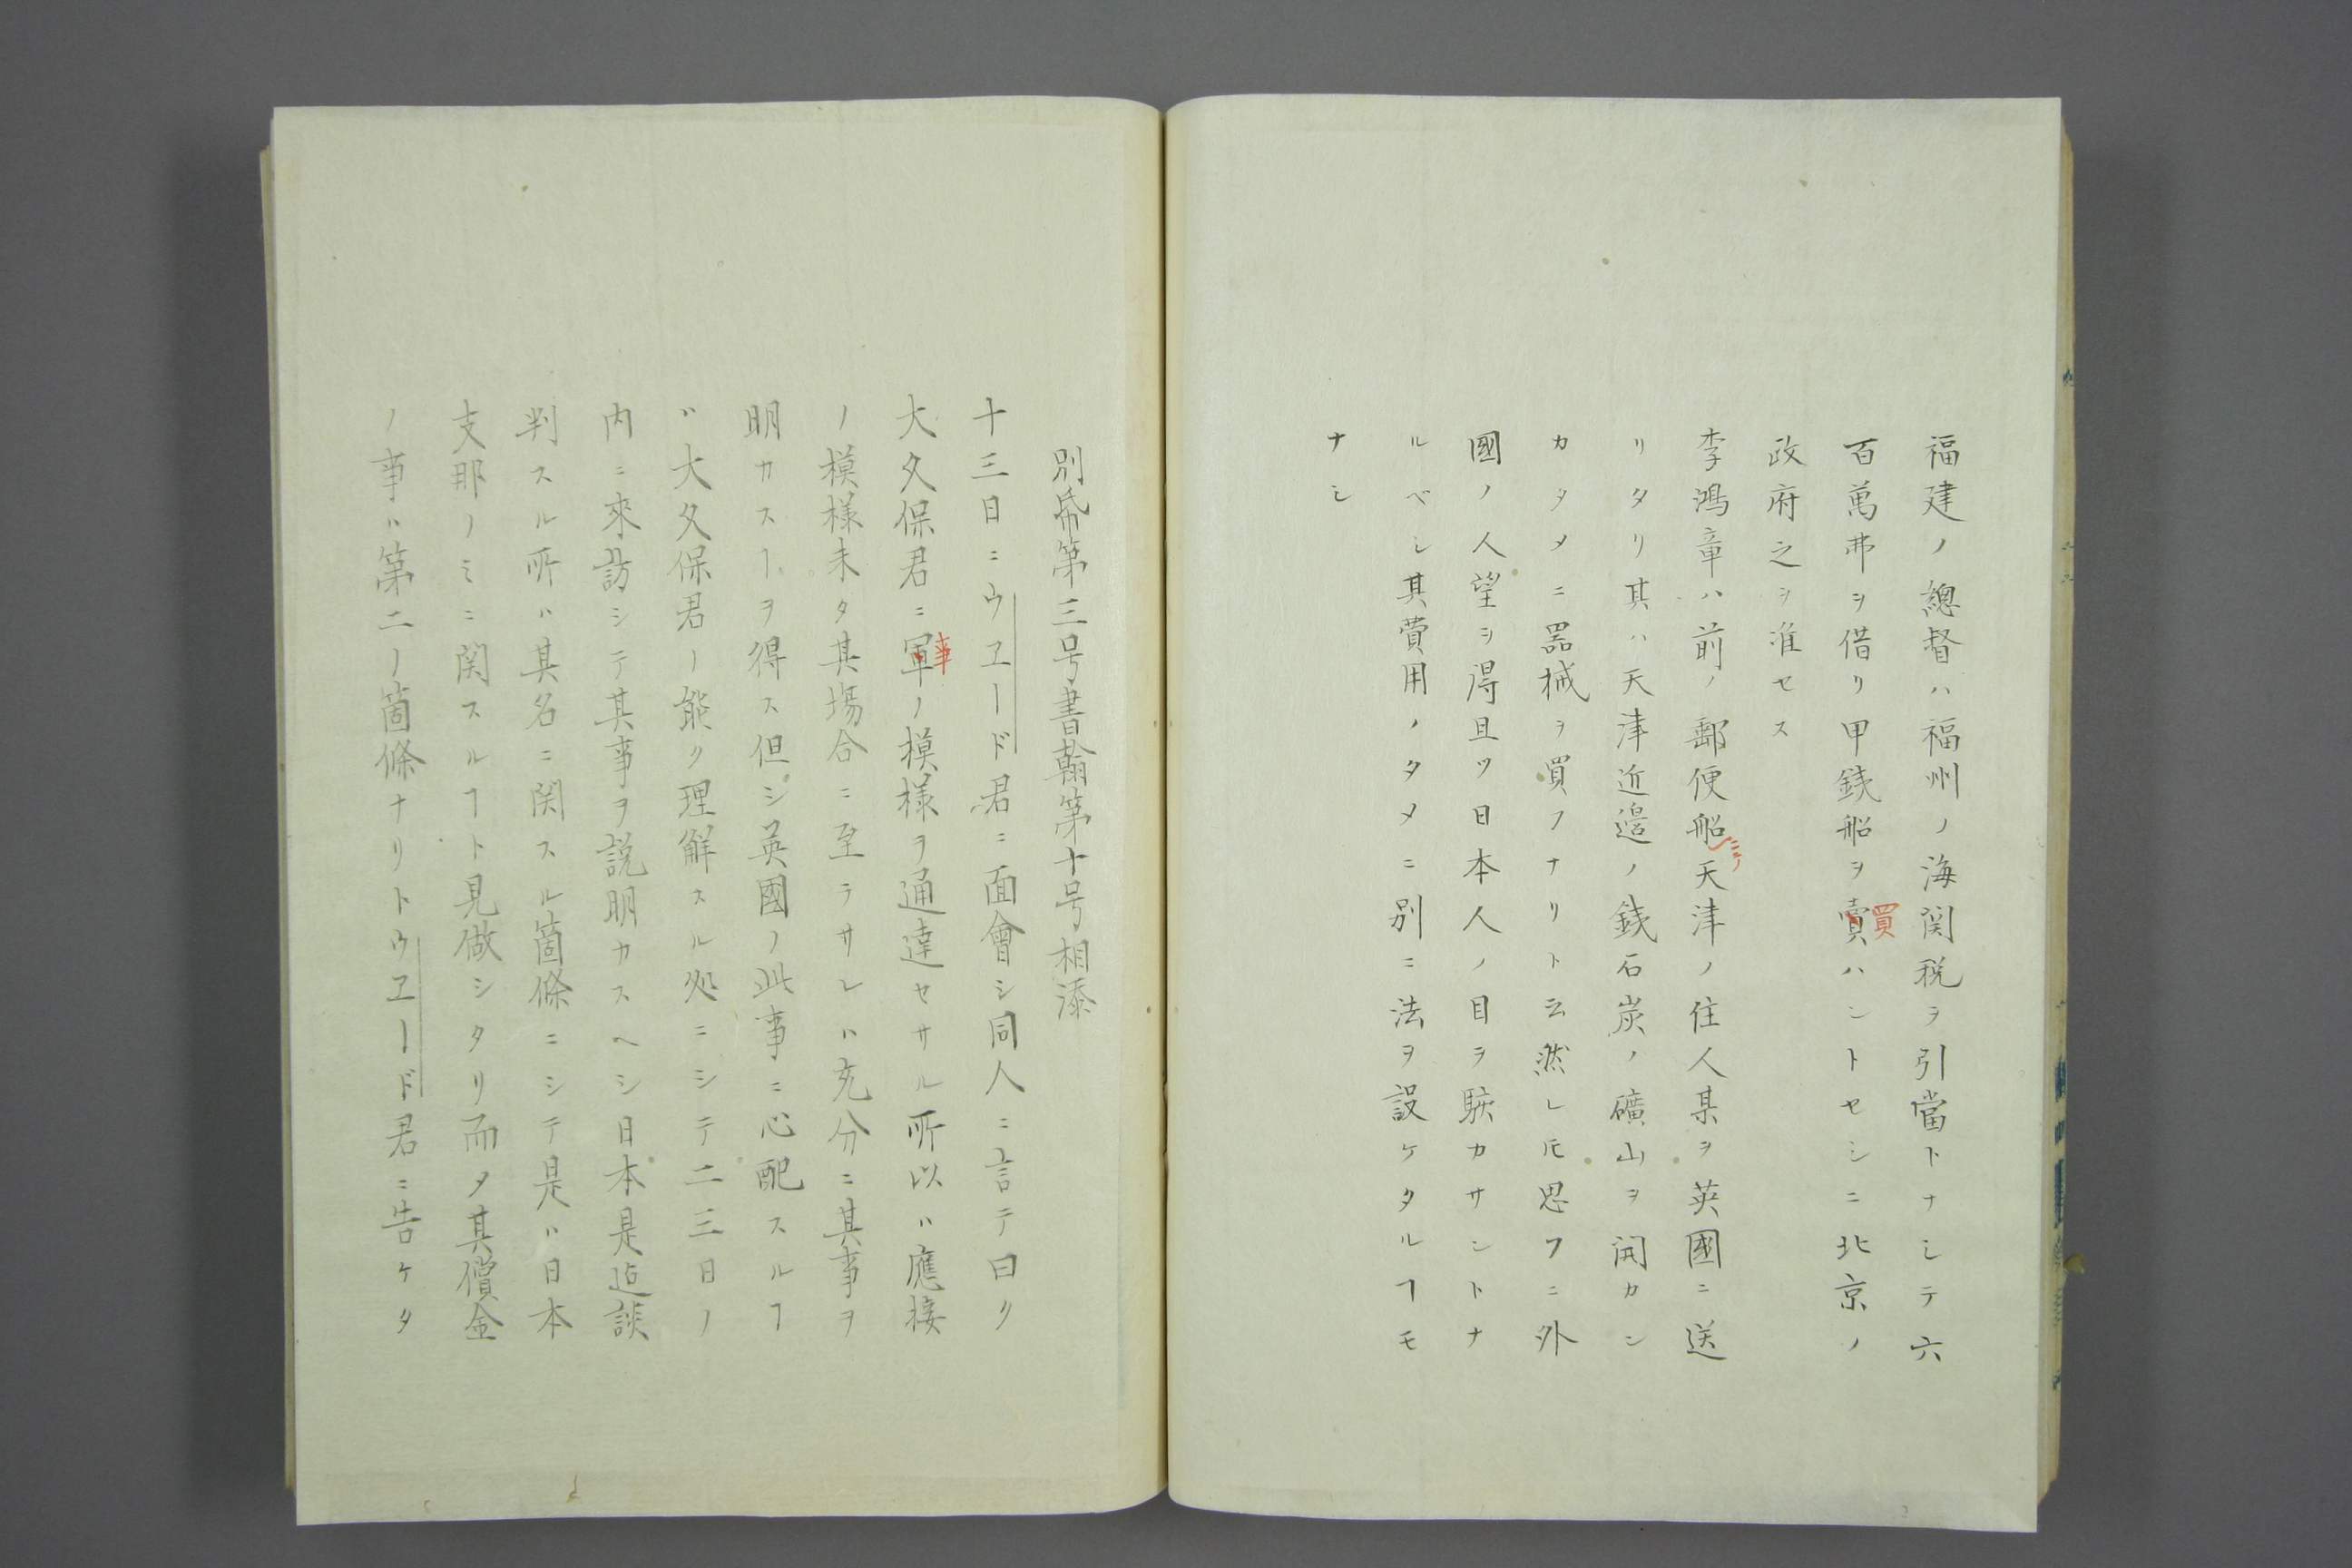 福建ノ總督ハ福州ノ海関税ヲ引當トナシテ六
百萬弗ヲ借リ甲銕船ヲ賣ハントセシニ北京ノ
買
政府之ヲ准セス
李鴻章ハ前ノ郵便船天津ノ住人某ヲ英國ニ送
ニテ
リタリ其ハ天津近邉ノ銕石炭ノ礦山ヲ開カン
カタメニ器械ヲ買フナリト云然レ𪜈思フニ外
國ノ人望ヲ得且ツ日本人ノ目ヲ駭カサントナ
ルベシ其費用ノタメニ別ニ法ヲ設ケタルヿモ
ナシ
別帋第三号書翰第十号相添
十三日ニウエード君ニ面會シ同人ニ言テ曰ク
大久保君ニ軍ノ模様ヲ通達セサル所以ハ應接
事
ノ模様未タ其塲合ニ至ラサレハ充分ニ其事ヲ
明カスヿヲ得ス但シ英國ノ此事ニ心配スルヿ
ハ大久保君ノ能ク理解スル処ニシテ二三日ノ
内ニ來訪シテ其事ヲ説明カスヘシ日本是迠談
判スル所ハ其名ニ関スル箇條ニシテ是ハ日本
支那ノミニ関スルヿト見做シタリ而メ其償金
ノ事ハ第二ノ箇條ナリトウエード君ニ告ケタ